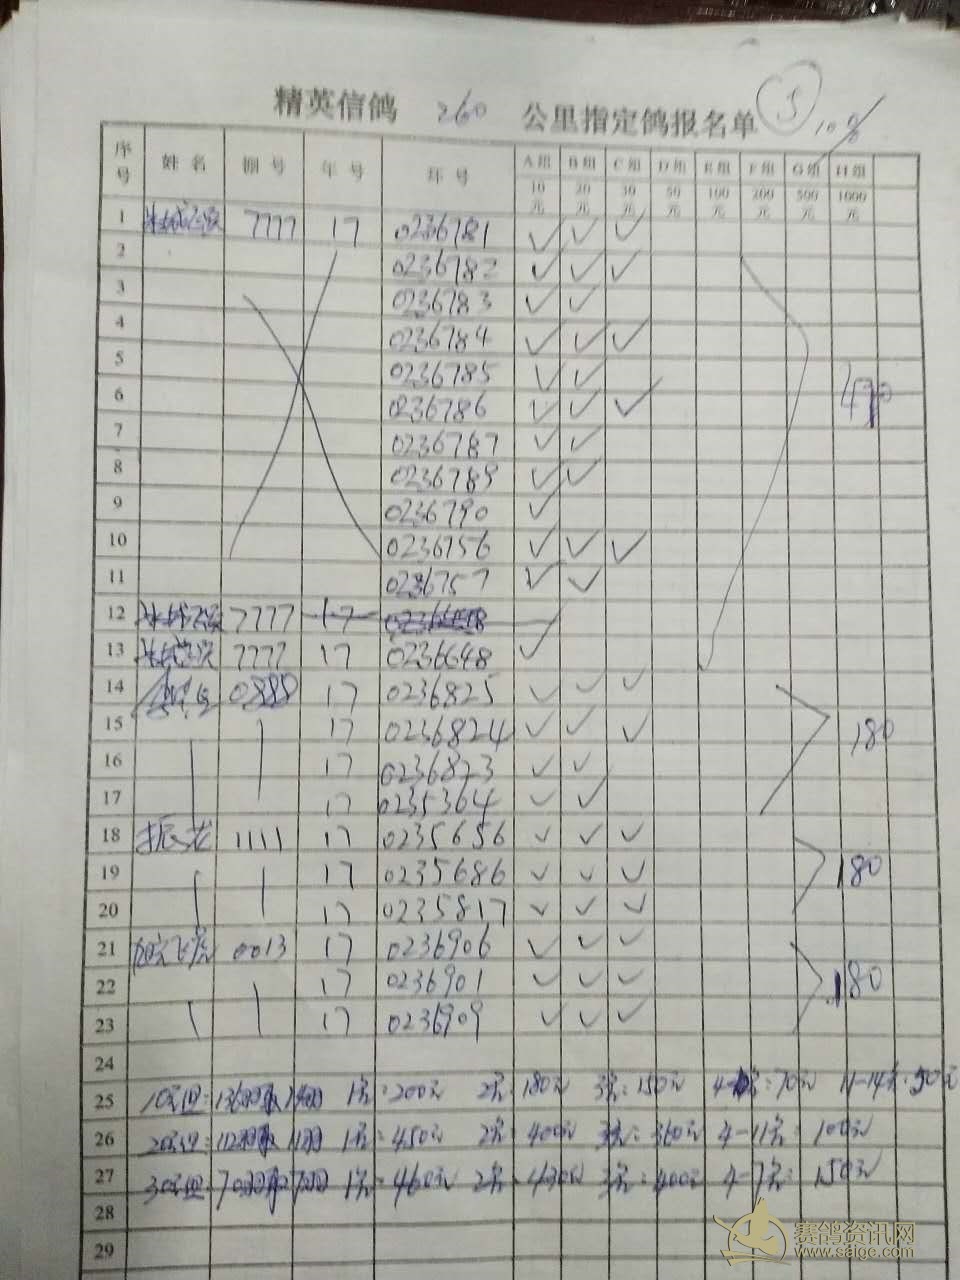 精英信鸽 260 公里指定鸽报名单 5
序号 姓名 棚号 年号 环号 A组 B组 C组 D组 E组 F组 G组 H组
10元 20元 30元 50元 100元 200元 500元 1000元
1 7777 17 0236781 ✓ ✓ ✓
2 0236782 ✓ ✓ ✓
3 0236783 ✓ ✓
4 0236784 ✓ ✓ ✓
5 0236785 ✓ ✓
6 0236786 ✓ ✓ ✓ 490
7 0236787 ✓ ✓
8 0236789 ✓ ✓
9 0236790 ✓
10 0236756 ✓ ✓ ✓
11 0236757 ✓ ✓
12 7777 17
13 7777 17 0236648 ✓
14 0888 17 0236825 ✓ ✓ ✓
15 17 0236824 ✓ ✓ ✓ 180
16 17 0236823 ✓ ✓
17 17 0235364 ✓ ✓
18 振龙 1111 17 0235656 ✓ ✓ ✓
19 17 0235686 ✓ ✓ ✓ 180
20 17 0235817 ✓ ✓ ✓
21 0013 17 0236906 ✓ ✓ ✓
22 17 0236901 ✓ ✓ ✓ 180
23 17 0236909 ✓ ✓ ✓
24
25 10元组: 1名:200元 2名:180元 3名:150元 70元 11-14名:50元
26 20元组: 1名:450元 2名:400元 3名:360元 4-11名:100元
27 30元组: 1名:460元 2名:430元 3名:400元 4-7名:150元
28
29
赛鸽资讯网
www.saige.com